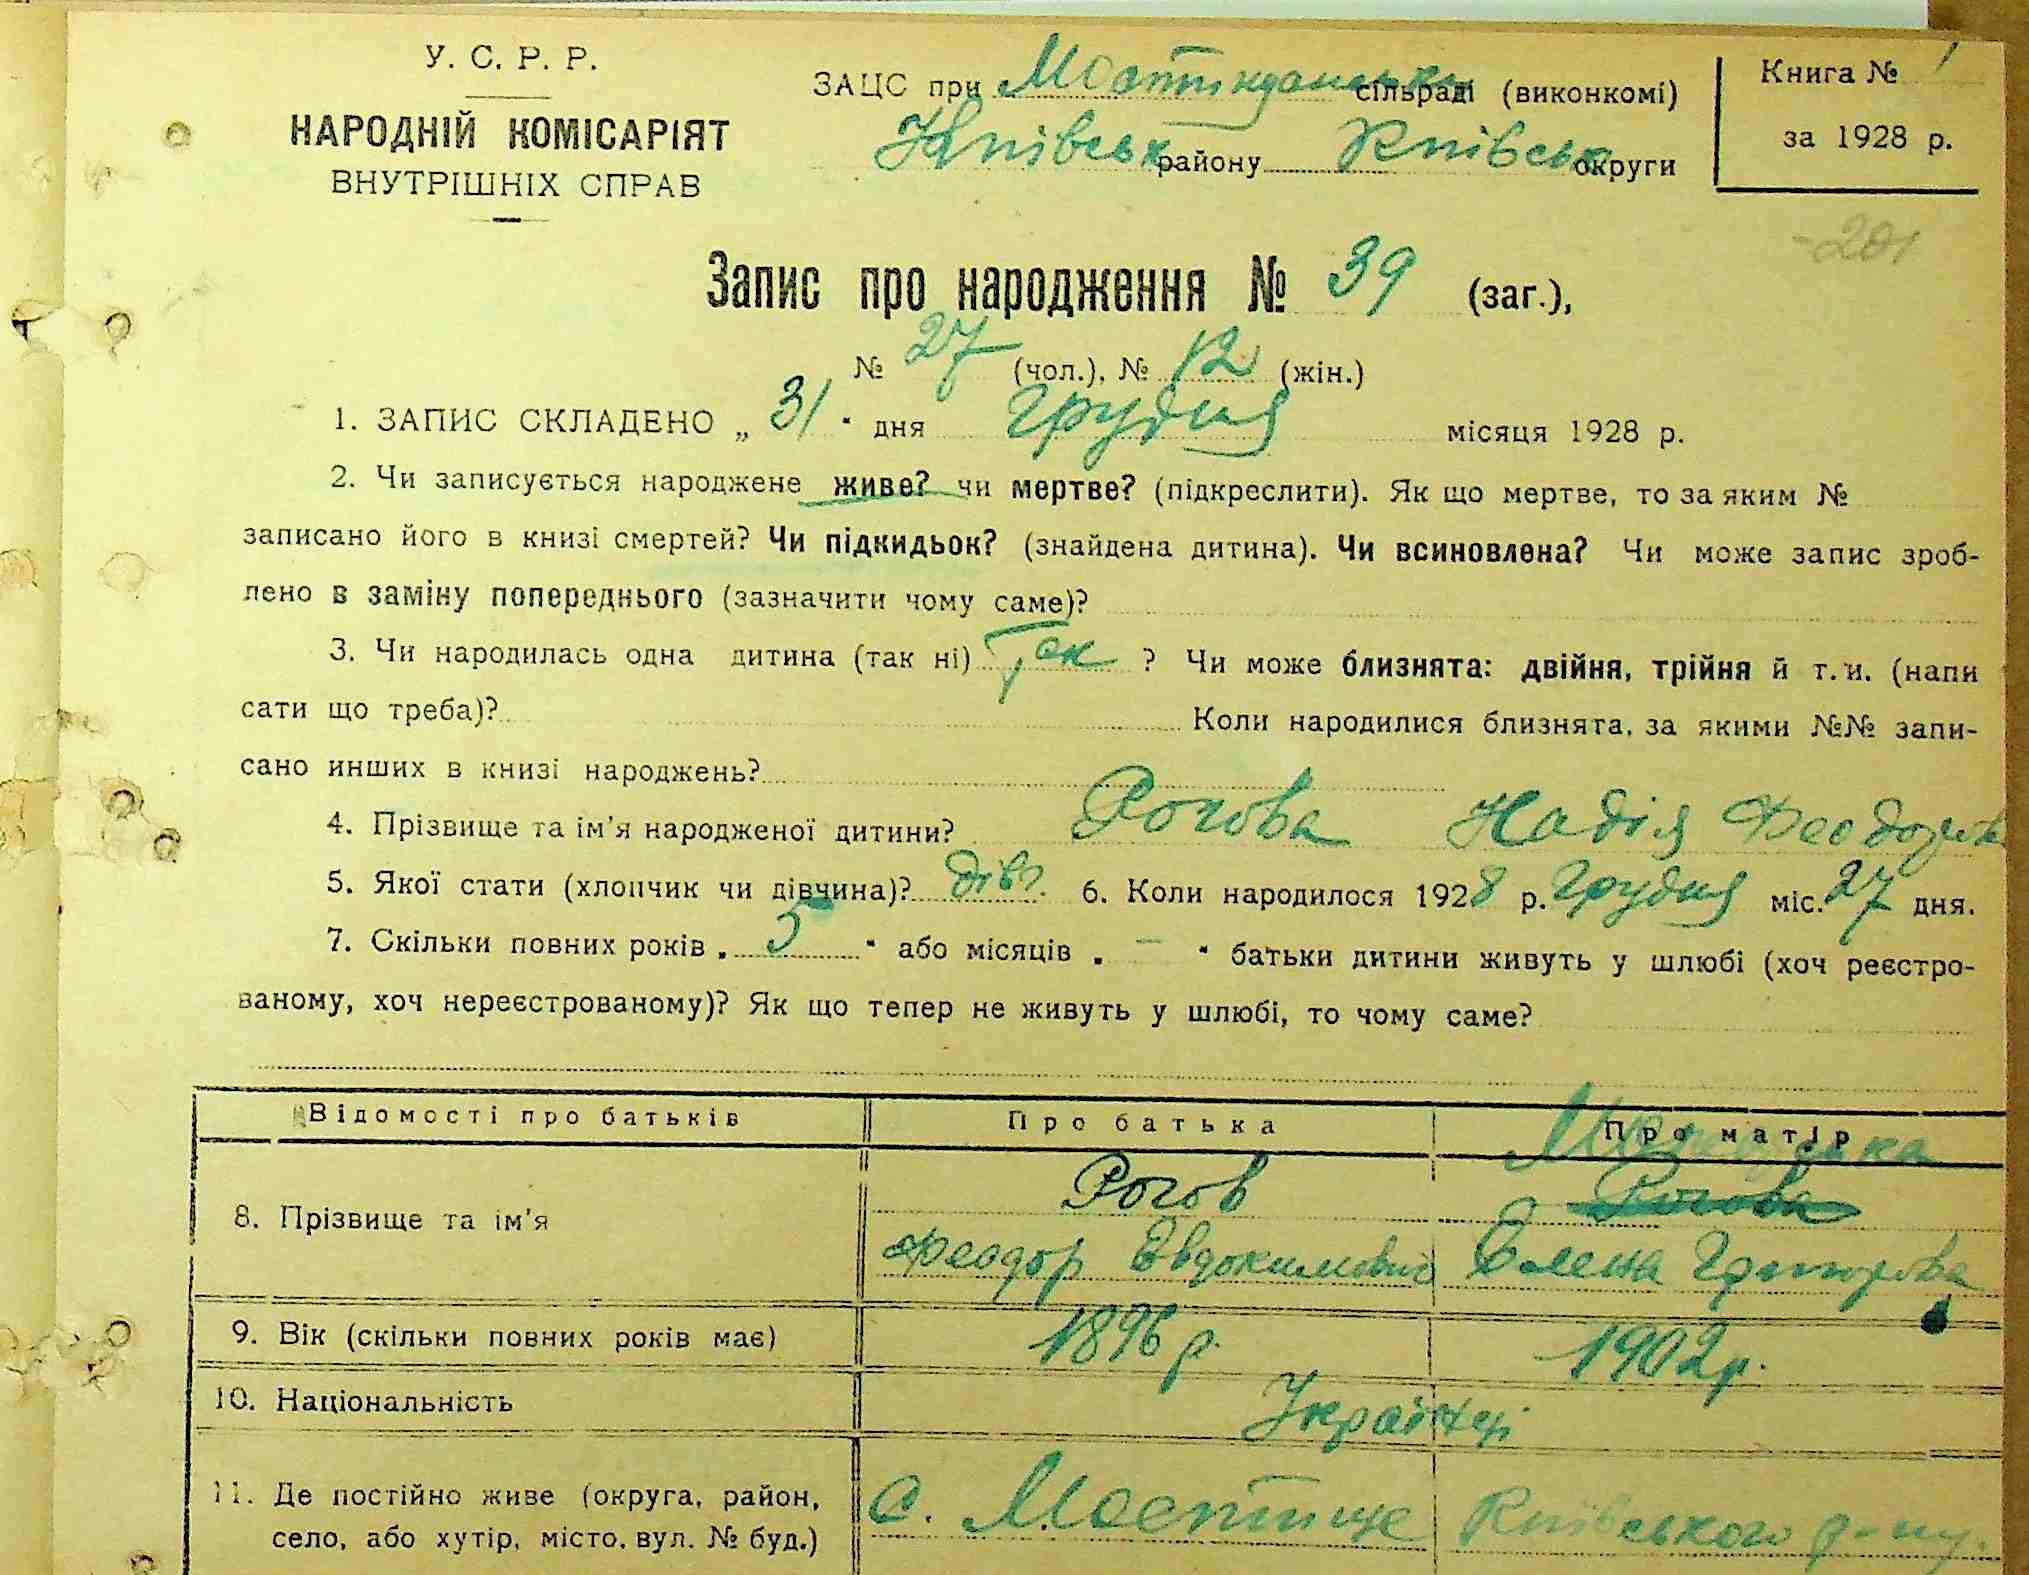 У. С. Р. Р.
НАРОДНІЙ КОМІСАРІЯТ
ВНУТРІШНІХ СПРАВ
ЗАЦС при сільраді (виконкомі)
Київськ району Київськ округи
Книга № 1
за 1928 р.
201
Запис про народження № 39 (заг.),
№ 27 (чол.), № 12 (жін.)
1. ЗАПИС СКЛАДЕНО „ 31 " дня Грудня місяця 1928 р.
2. Чи записується народжене живе? чи мертве? (підкреслити). Як що мертве, то за яким №
записано його в книзі смертей? Чи підкидьок? (знайдена дитина). Чи всиновлена? Чи може запис зроб-
лено в заміну попереднього (зазначити чому саме)?
3. Чи народилась одна дитина (так ні) Так ? Чи може близнята: двійня, трійня й т. и. (напи
сати що треба)? Коли народилися близнята, за якими №№ запи-
сано инших в книзі народжень?
4. Прізвище та ім'я народженої дитини? Рогова Надія Феодоров
5. Якої стати (хлопчик чи дівчина)? дівч. 6. Коли народилося 1928 р. Грудня міс. 27 дня.
7. Скільки повних років „ 5 " або місяців „ — " батьки дитини живуть у шлюбі (хоч реєстро-
ваному, хоч нереєстрованому)? Як що тепер не живуть у шлюбі, то чому саме?
Відомості про батьків Про батька Про матір
8. Прізвище та ім'я Рогов Рогова
Феодор Евдокимович Елена Григорова
9. Вік (скільки повних років має) 1896 р. 1902 р.
10. Національність Українці
11. Де постійно живе (округа, район, с. Мостище Київського р-ну.
село, або хутір, місто, вул. № буд.)